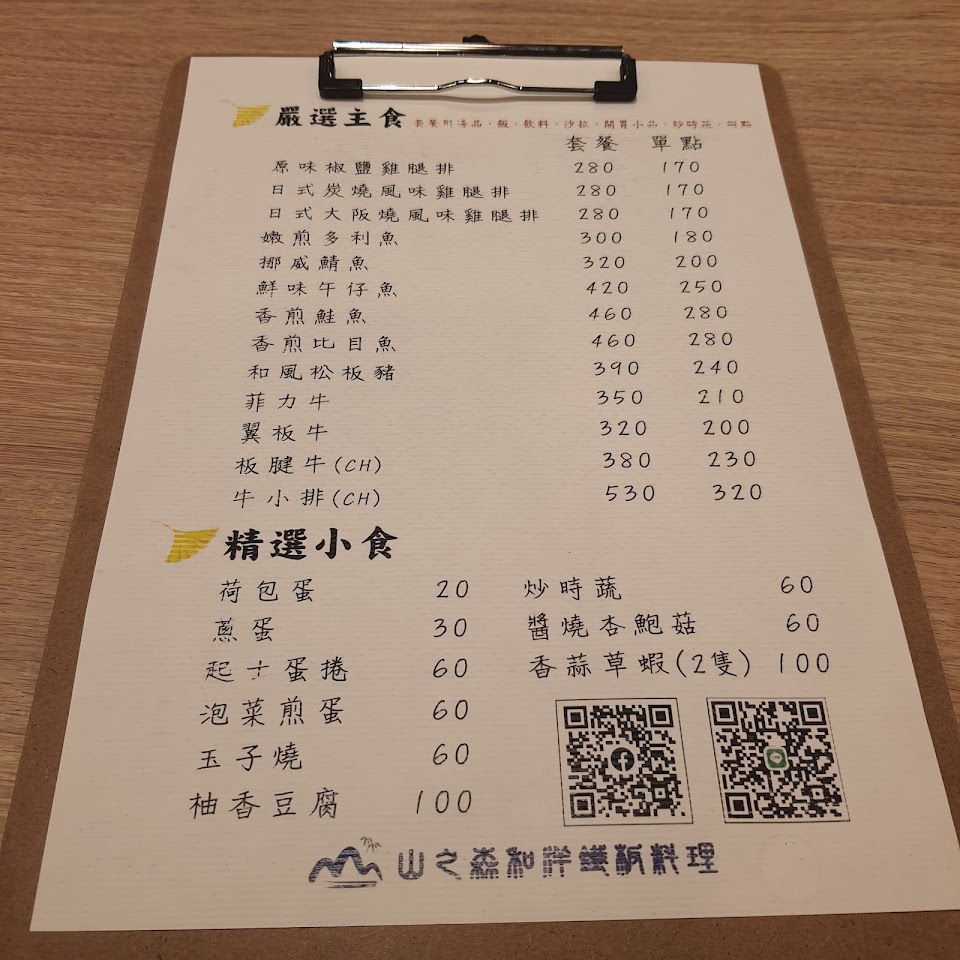 嚴選主食 套餐附湯品、飯、飲料、沙拉、開胃小品、炒時蔬、甜點
套餐 單點
原味椒鹽雞腿排 280 170
日式炭燒風味雞腿排 280 170
日式大阪燒風味雞腿排 280 170
嫩煎多利魚 300 180
挪威鯖魚 320 200
鮮味午仔魚 420 250
香煎鮭魚 460 280
香煎比目魚 460 280
和風松板豬 390 240
菲力牛 350 210
翼板牛 320 200
板腱牛(CH) 380 230
牛小排(CH) 530 320
精選小食
荷包蛋 20 炒時蔬 60
蔥蛋 30 醬燒杏鮑菇 60
起士蛋捲 60 香蒜草蝦(2隻) 100
泡菜煎蛋 60
玉子燒 60
柚香豆腐 100
山之森和洋鐵板料理